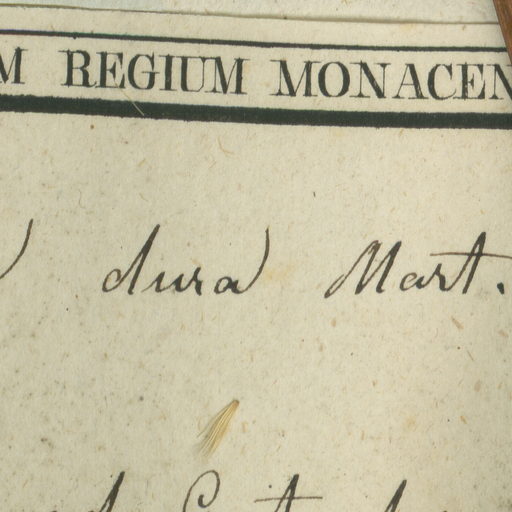 M REGIUM MONACEN
dura Mart.